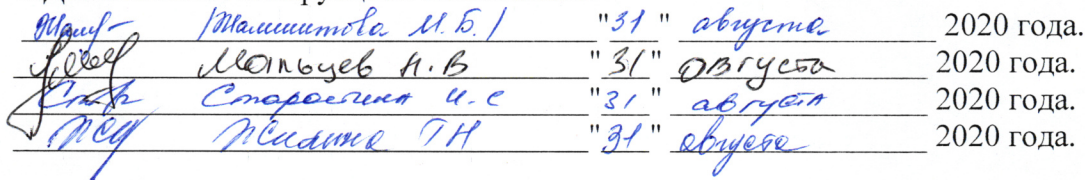 М. Б. / "31" августа 2020 года.
Мальцев Н.В "31" августа 2020 года.
Старостина И.С "31" августа 2020 года.
Жилина ТН "31" августа 2020 года.